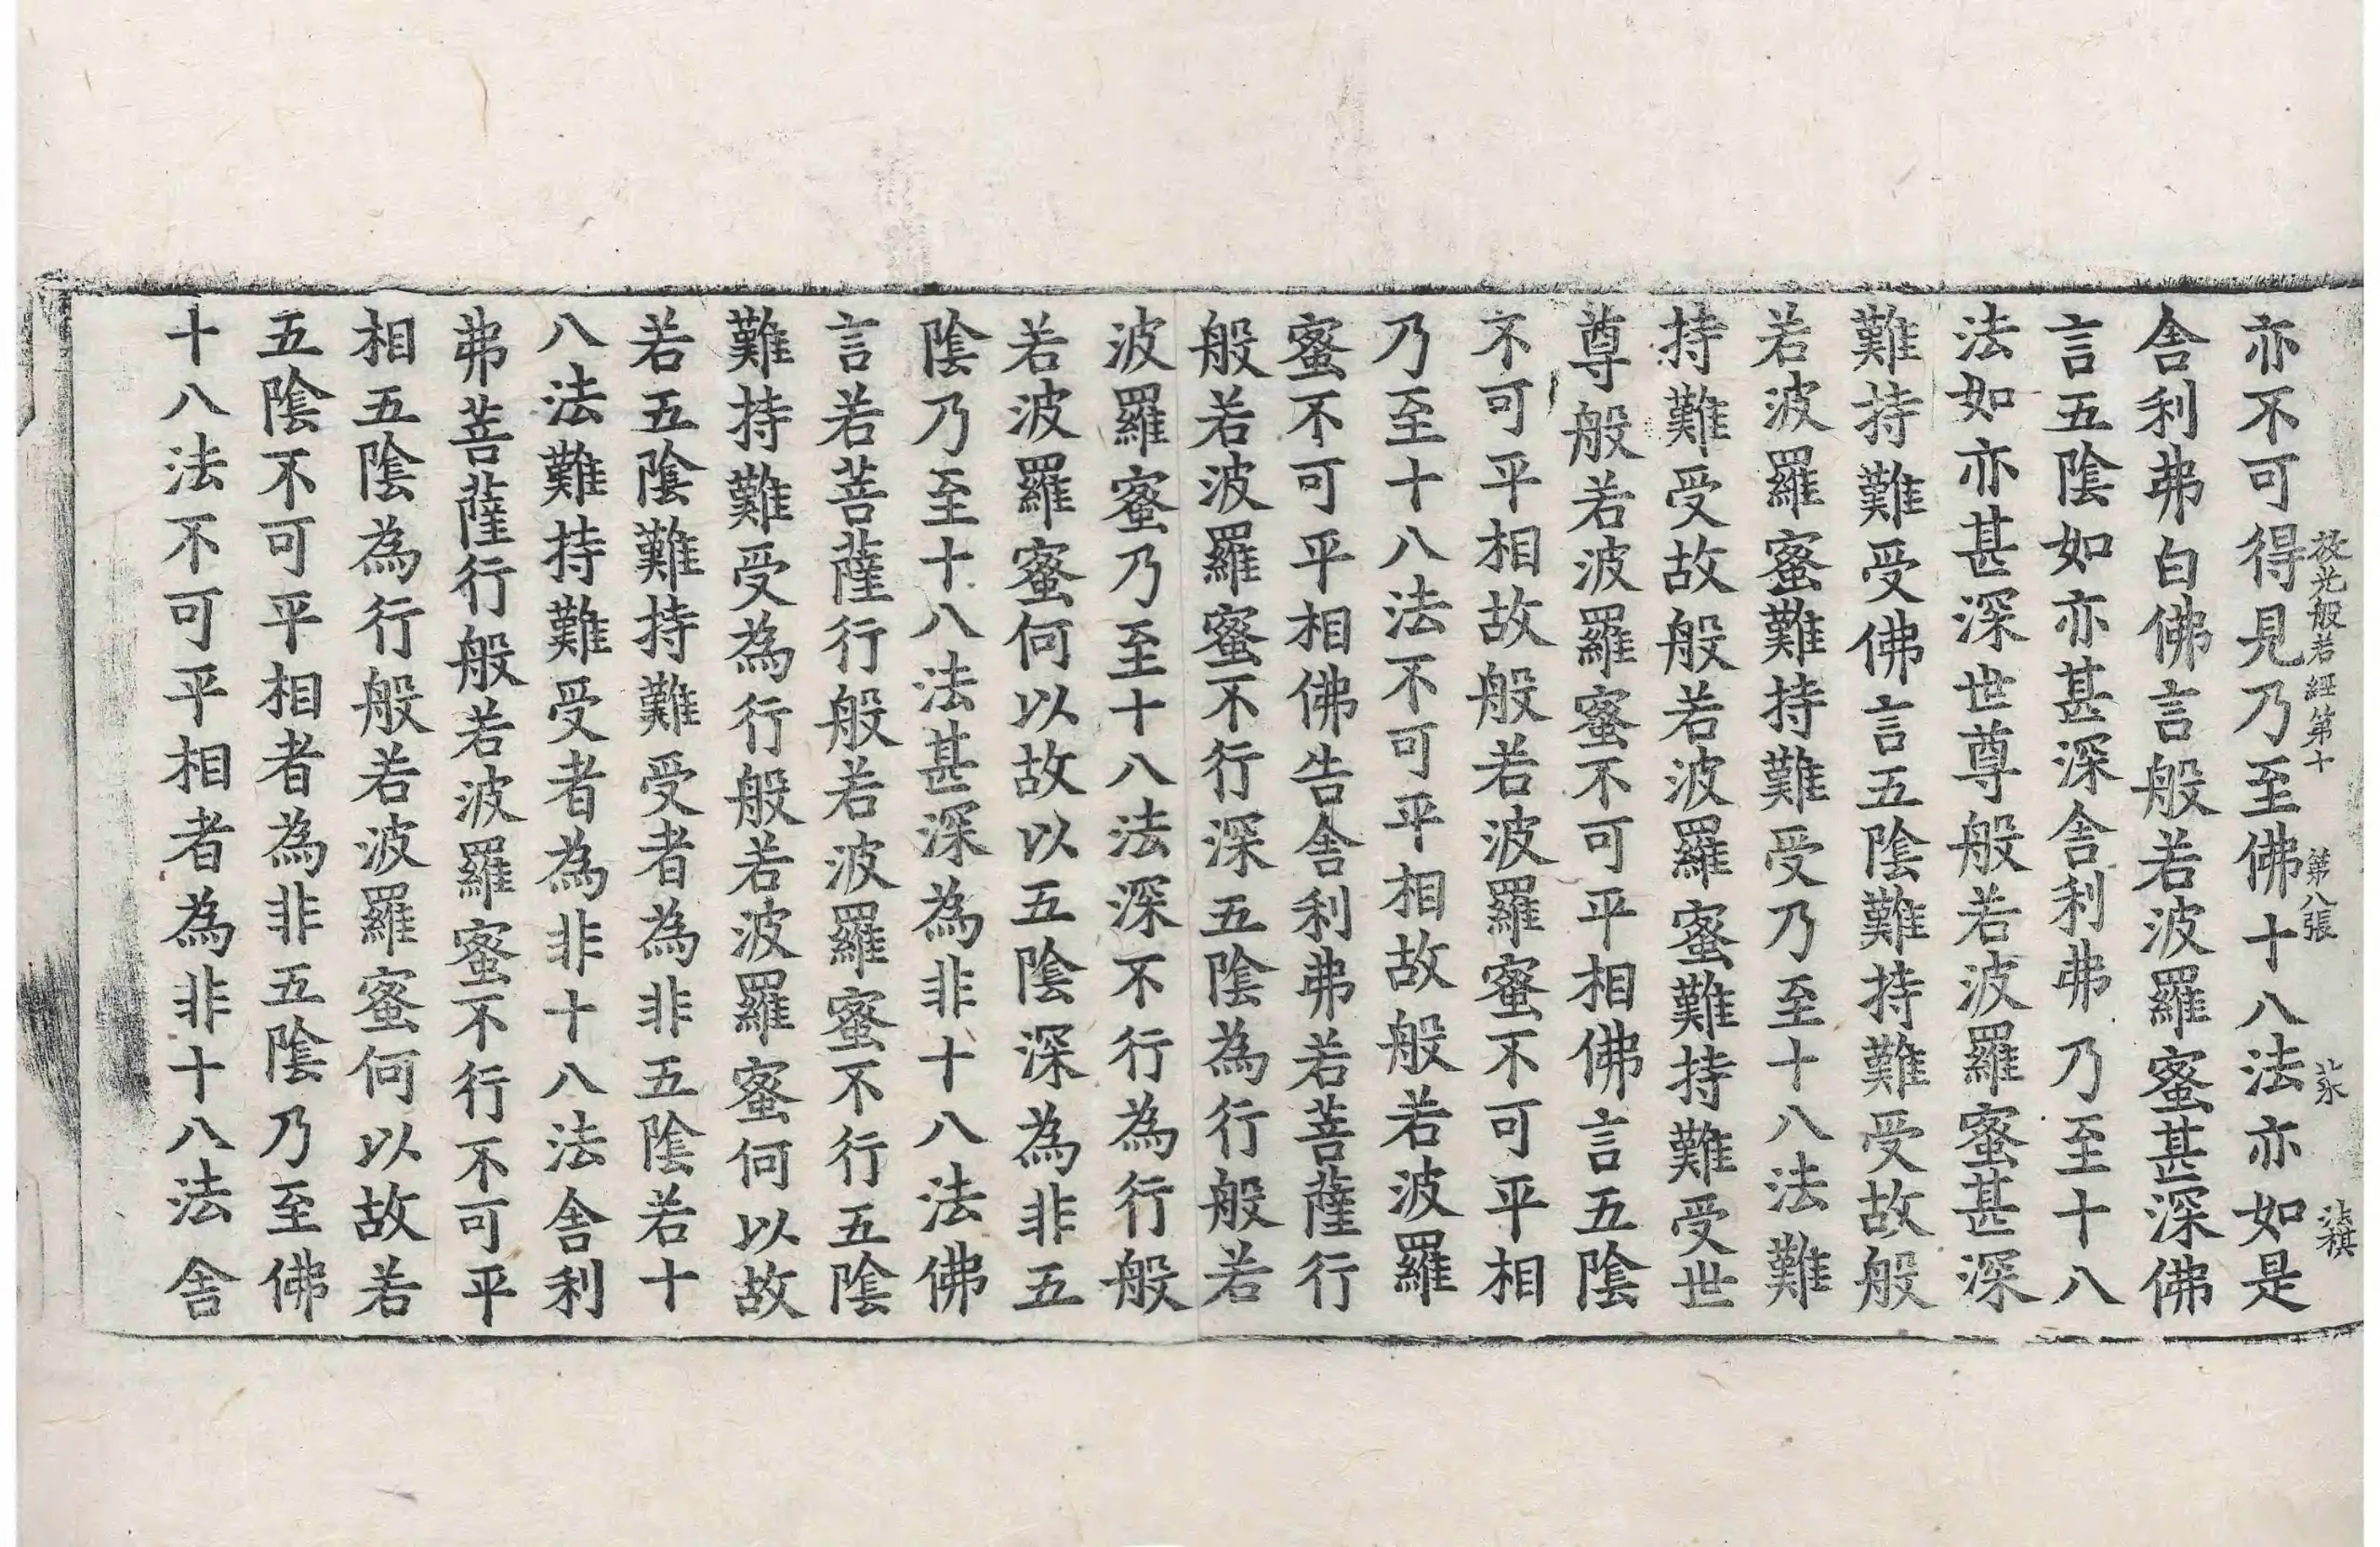 放光般若經第十 第八張 法祺
亦不可得見乃至佛十八法亦如是
舎利弗白佛言般若波羅蜜甚深佛
言五陰如亦甚深舎利弗乃至十八
法如亦甚深世尊般若波羅蜜甚深
難持難受佛言五陰難持難受故般
若波羅蜜難持難受乃至十八法難
持難受故般若波羅蜜難持難受世
尊般若波羅蜜不可平相佛言五陰
不可平相故般若波羅蜜不可平相
乃至十八法不可平相故般若波羅
蜜不可平相佛告舎利弗若菩薩行
般若波羅蜜不行深五陰為行般若
波羅蜜乃至十八法深不行為行般
若波羅蜜何以故以五陰深為非五
陰乃至十八法甚深為非十八法佛
言若菩薩行般若波羅蜜不行五陰
難持難受為行般若波羅蜜何以故
若五陰難持難受者為非五陰若十
八法難持難受者為非十八法舎利
弗菩薩行般若波羅蜜不行不可平
相五陰為行般若波羅蜜何以故若
五陰不可平相者為非五陰乃至佛
十八法不可平相者為非十八法舎